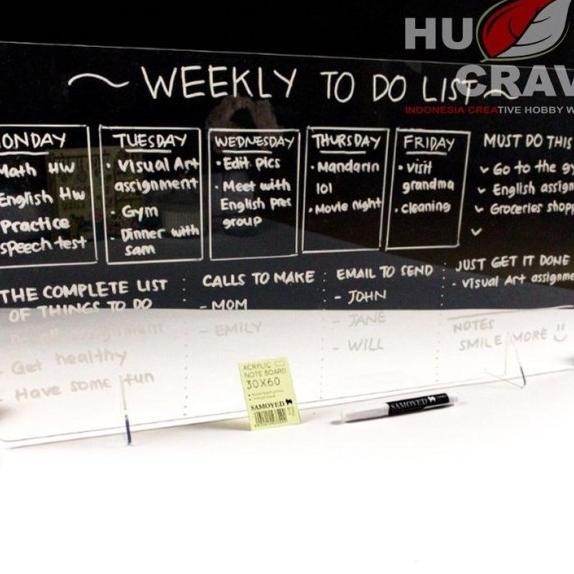 HU
CRAV
INDONESIA CREATIVE HOBBY W
~ WEEKLY TO DO LIST ~
ONDAY
Math HW
English HW
Practice
speech test
TUESDAY
• Visual Art
assignment
• Gym
• Dinner with
sam
WEDNESDAY
• Edit pics
• Meet with
English
group
THURSDAY
• Mandarin
101
• Movie night
FRIDAY
• visit
grandma
• cleaning
MUST DO THIS
Go to the gy
English assign
Groceries shop
THE COMPLETE LIST
OF THINGS TO DO
assignment
- Get healthy
- Have some fun
CALLS TO MAKE :
- MOM
- EMILY
EMAIL TO SEND :
- JOHN
- JANE
- WILL
JUST GET IT DONE
- Visual Art assignme
NOTES
SMILE MORE
ACRYLIC
NOTE BOARD
30X60
SAMOYED
SAMOYED